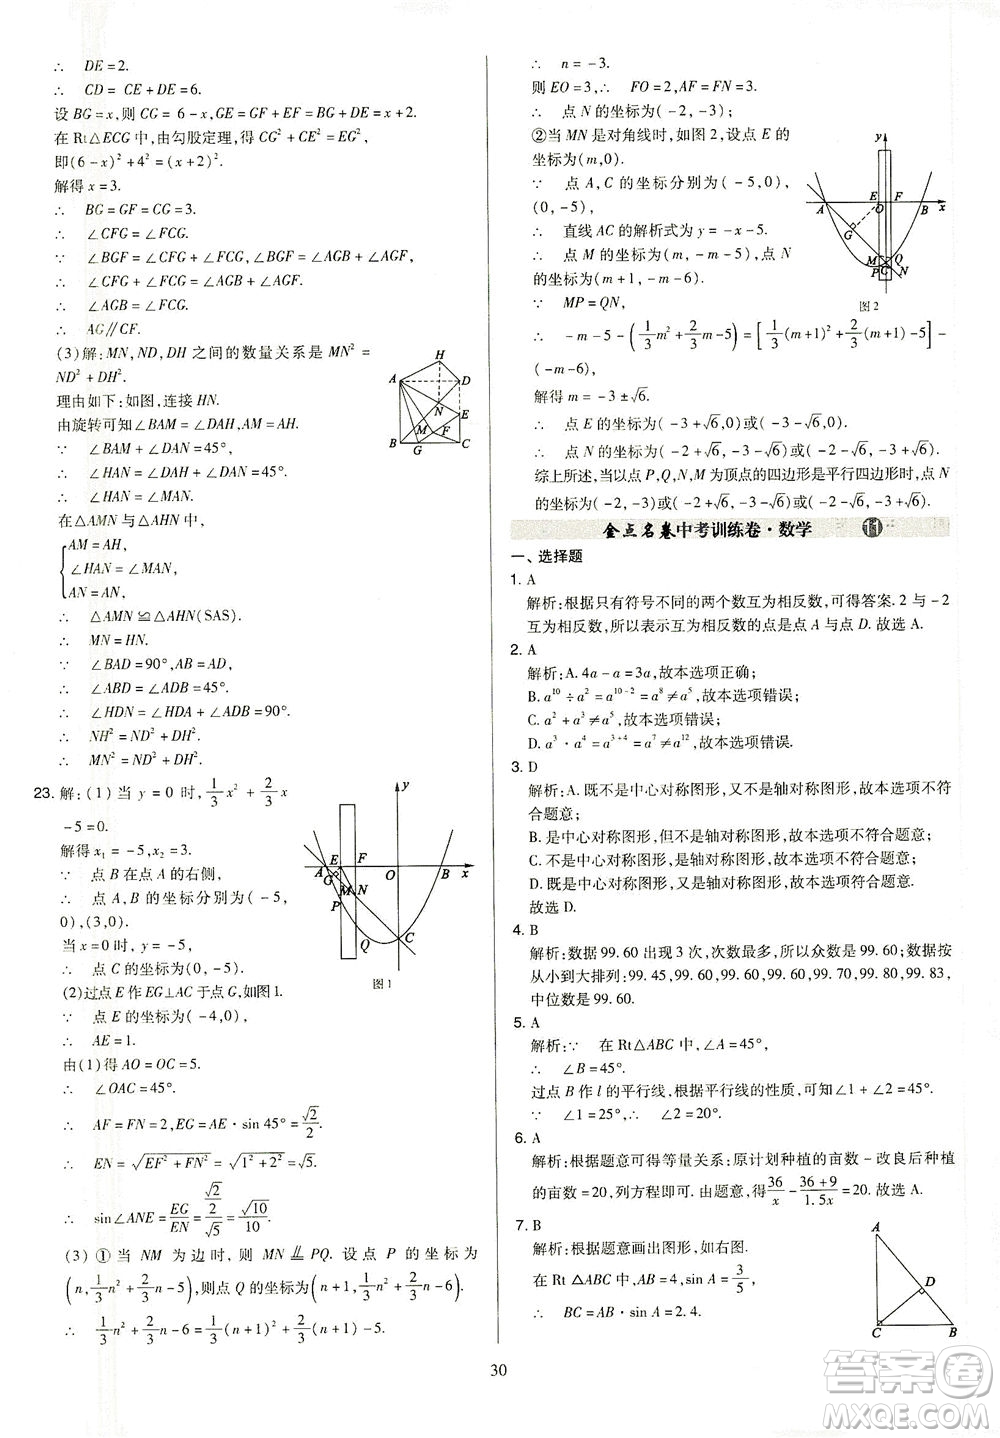 ∴ DE=2.
∴ CD= CE+DE=6.
设 BG=x,则 CG= 6-x,GE=GF+EF=BG+DE=x+2.
在 Rt△ECG 中,由勾股定理,得 CG²+CE²=EG²,
即(6-x)²+4²=(x+2)²
解得 x=3.
∴ BG=GF=CG=3.
∴ ∠CFG=∠FCG.
∵ ∠BGF=∠CFG+∠FCG,∠BGF=∠AGB+∠AGF,
∴ ∠CFG+∠FCG=∠AGB+∠AGF
∴ ∠AGB=∠FCG.
∴ AG∥CF.
(3)解:MN,ND,DH 之间的数量关系是 MN²=
ND²+DH².
理由如下:如图,连接 HN.
由旋转可知∠BAM=∠DAH,AM=AH.
∵ ∠BAM+∠DAN=45°,
∴ ∠HAN=∠DAH+∠DAN=45°.
∴ ∠HAN=∠MAN.
在△AMN 与△AHN 中,
AM=AH,
∠HAN=∠MAN,
AN=AN,
∴ △AMN≌△AHN(SAS).
∴ MN=HN.
∵ ∠BAD=90°,AB=AD,
∴ ∠ABD=∠ADB=45°.
∴ ∠HDN=∠HDA+∠ADB=90°.
∴ NH²=ND²+DH².
∴ MN²=ND²+DH².
H
A
D
N
E
M
F
B
G
C
23. 解:(1)当 y=0 时,1/3x²+2/3x
-5=0.
解得 x₁=-5,x₂=3.
∵ 点 B 在点 A 的右侧,
∴ 点 A,B 的坐标分别为(-5,
0),(3,0).
当 x=0 时,y=-5,
∴ 点 C 的坐标为(0,-5).
(2)过点 E 作 EG⊥AC 于点 G,如图1.
∵ 点 E 的坐标为(-4,0),
∴ AE=1.
由(1)得 AO=OC=5.
∴ ∠OAC=45°.
∴ AF=FN=2,EG=AE·sin 45°=√2/2.
∴ EN=√(EF²+FN²)=√(1²+2²)=√5.
∴ sin∠ANE=EG/EN=(√2/2)/√5=√10/10.
(3) ① 当 NM 为边时,则 MN ∥= PQ. 设点 P 的坐标为
(n,1/3n²+2/3n-5),则点 Q 的坐标为(n+1,1/3n²+2/3n-6).
∴ 1/3n²+2/3n-6=1/3(n+1)²+2/3(n+1)-5.
y
E
F
A
G
O
B
x
M
N
P
Q
C
图1
∴ n=-3.
则 EO=3,∴ FO=2,AF=FN=3.
∴ 点 N 的坐标为(-2,-3).
②当 MN 是对角线时,如图 2,设点 E 的
坐标为(m,0).
∵ 点 A,C 的坐标分别为(-5,0),
(0,-5),
∴ 直线 AC 的解析式为 y=-x-5.
∴ 点 M 的坐标为(m,-m-5),点 N
的坐标为(m+1,-m-6).
∵ MP=QN,
∴ -m-5-(1/3m²+2/3m-5)=[1/3(m+1)²+2/3(m+1)-5]-
(-m-6),
解得 m=-3±√6.
∴ 点 E 的坐标为(-3+√6,0)或(-3-√6,0).
∴ 点 N 的坐标为(-2+√6,-3-√6)或(-2-√6,-3+√6).
综上所述,当以点 P,Q,N,M 为顶点的四边形是平行四边形时,点 N
的坐标为(-2,-3)或(-2+√6,-3-√6)或(-2-√6,-3+√6).
y
E
F
A
O
B
x
G
M
Q
P
C
N
图2
金点名卷中考训练卷·数学 11
一、选择题
1. A
解析:根据只有符号不同的两个数互为相反数,可得答案. 2 与 -2
互为相反数,所以表示互为相反数的点是点 A 与点 D. 故选 A.
2. A
解析:A. 4a-a=3a,故本选项正确;
B. a¹⁰÷a²=a¹⁰⁻²=a⁸≠a⁵,故本选项错误;
C. a²+a³≠a⁵,故本选项错误;
D. a³·a⁴=a³⁺⁴=a⁷≠a¹²,故本选项错误.
3. D
解析:A. 既不是中心对称图形,又不是轴对称图形,故本选项不符
合题意;
B. 是中心对称图形,但不是轴对称图形,故本选项不符合题意;
C. 不是中心对称图形,是轴对称图形,故本选项不符合题意;
D. 既是中心对称图形,又是轴对称图形,故本选项符合题意.
故选 D.
4. B
解析:数据 99.60 出现 3 次,次数最多,所以众数是 99.60,数据按
从小到大排列:99.45,99.60,99.60,99.60,99.70,99.80,99.83,
中位数是 99.60.
5. A
解析:∵ 在 Rt△ABC 中,∠A=45°,
∴ ∠B=45°.
过点 B 作 l 的平行线,根据平行线的性质,可得∠1+∠2=45°.
∵ ∠1=25°,∴ ∠2=20°.
6. A
解析:根据题意可得等量关系:原计划种植的亩数-改良后种植
的亩数=20,列方程即可. 由题意,可得36/x-(36+9)/1.5x=20. 故选 A.
7. B
解析:根据题意画出图形,如右图.
在 Rt △ABC 中,AB=4,sin A=3/5,
∴ BC=AB·sin A=2.4.
A
D
C
B
30
答案圈
MXQE.COM